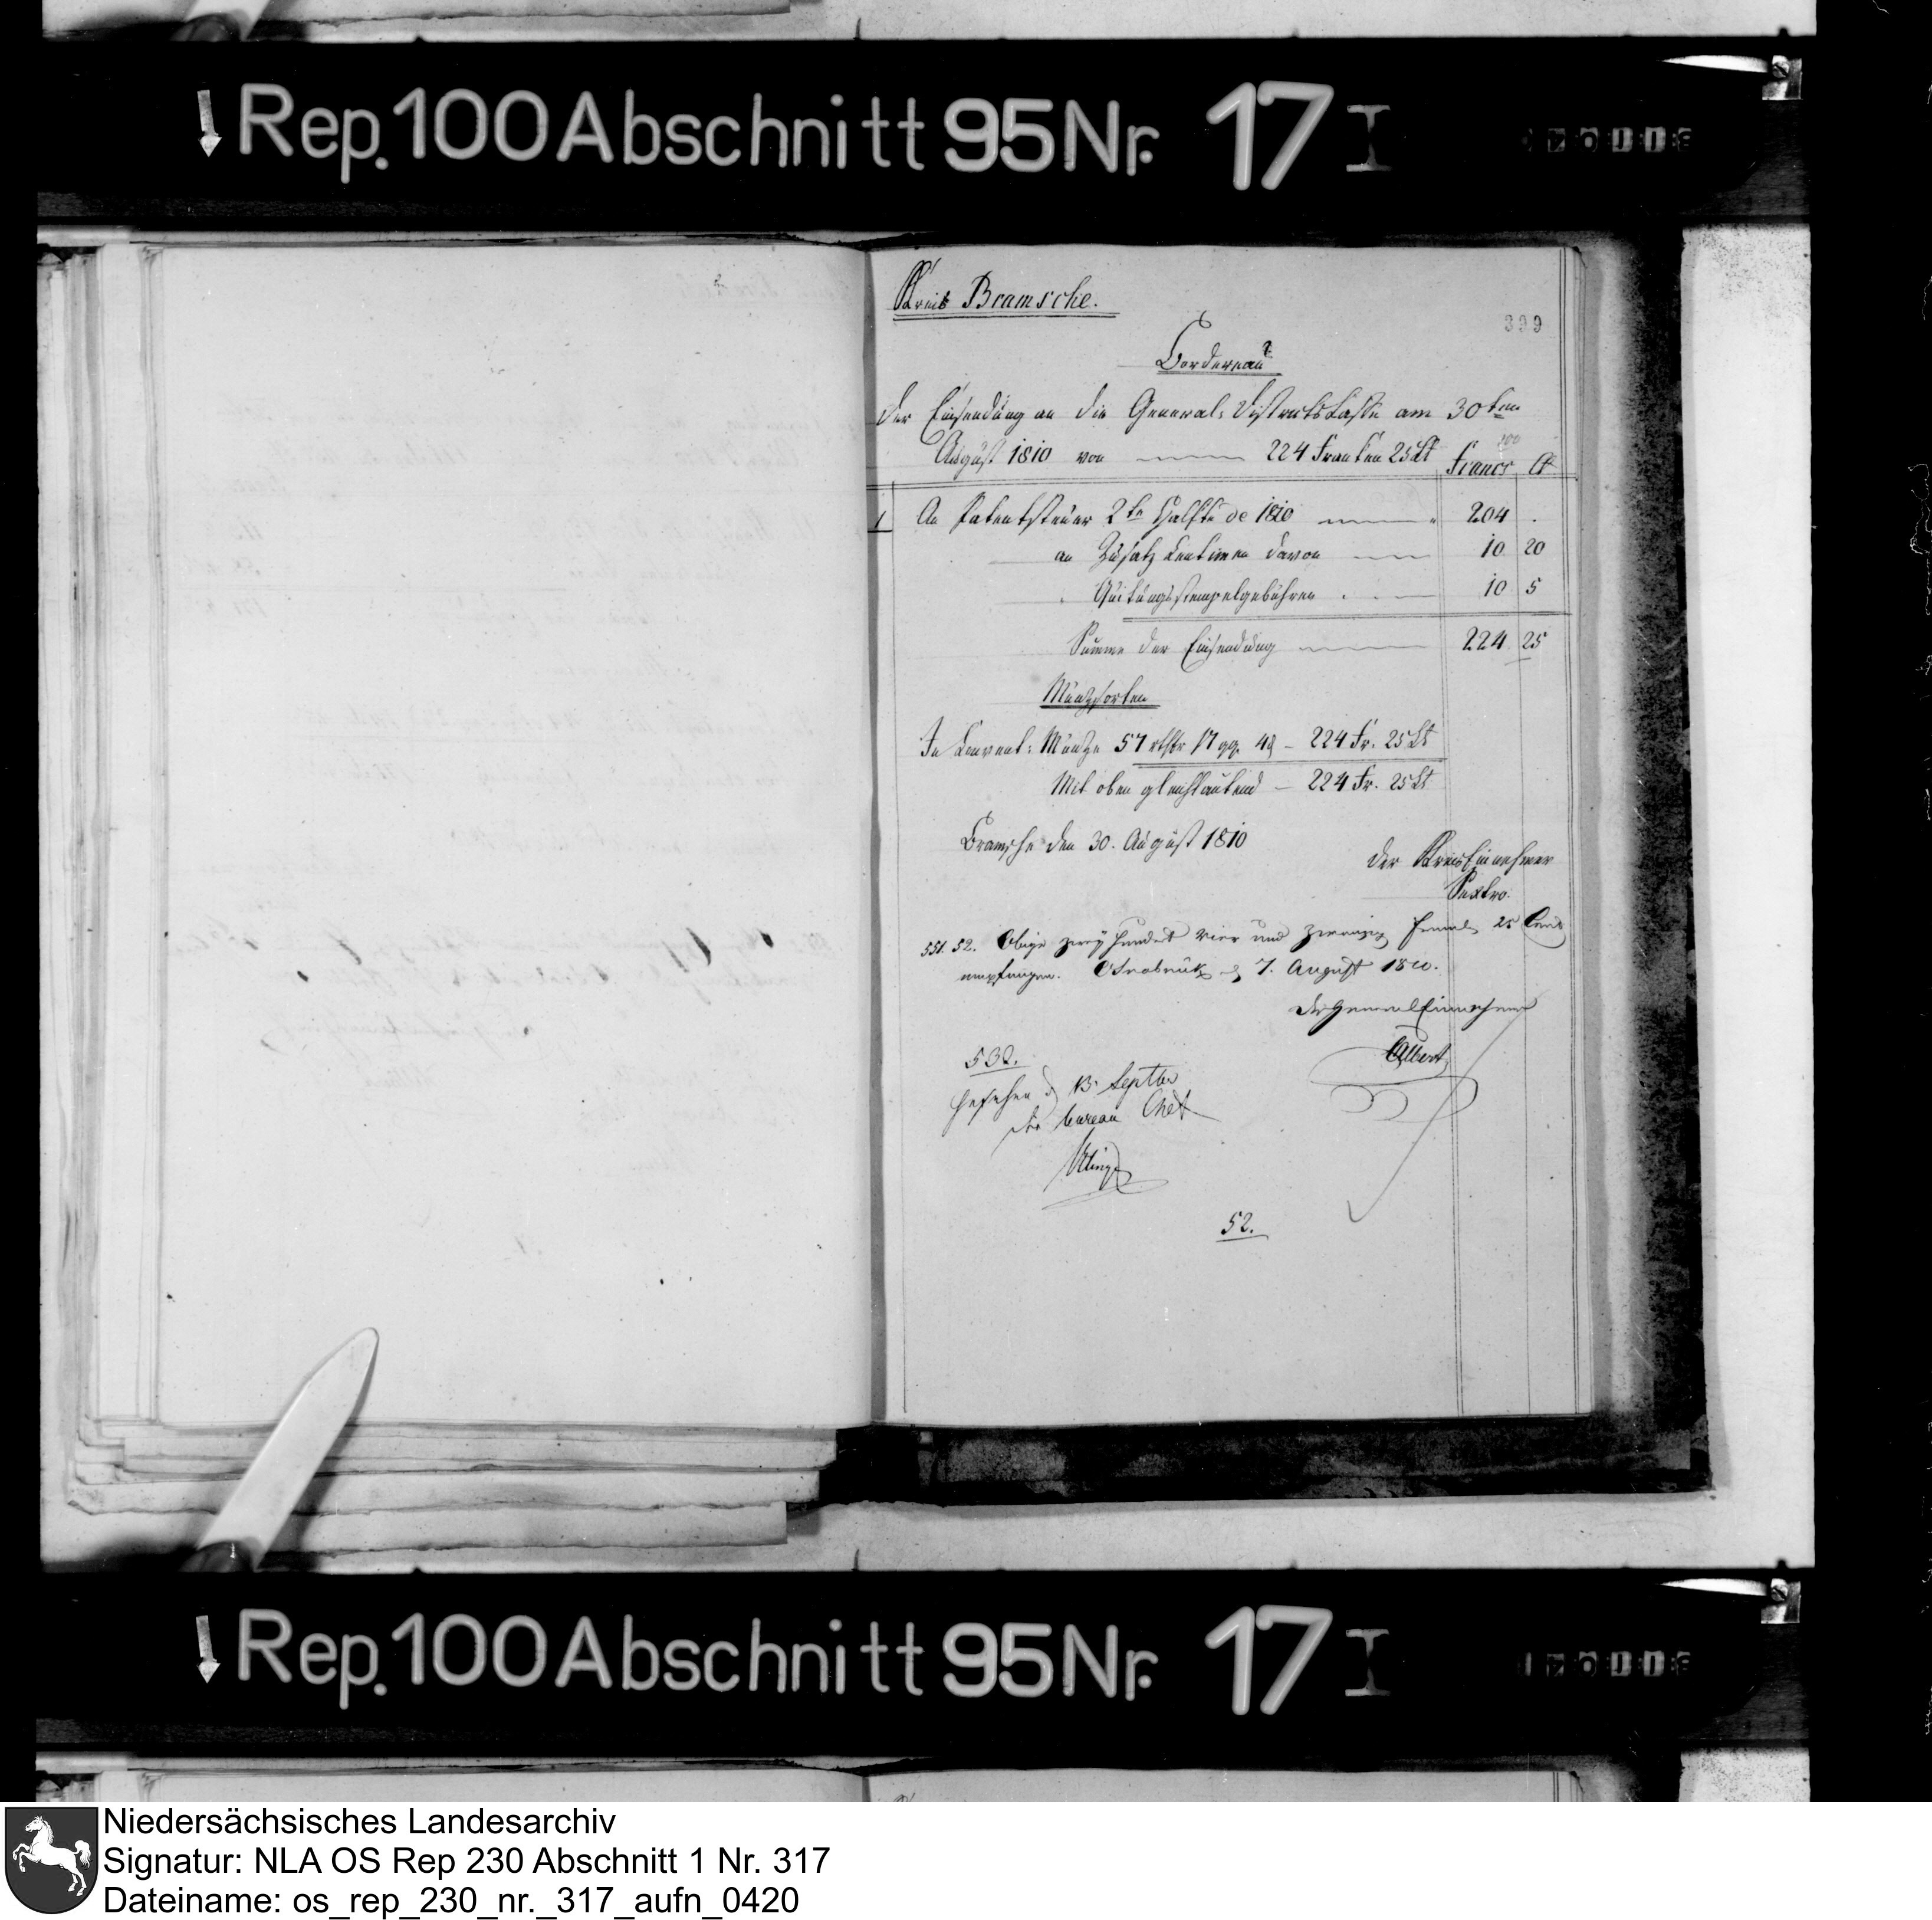 Rep. 100 Abschnitt 95 Nr. 17 I
Kreis Bramsche.
399
Bordereau
der Einsendung an die General-Distriktskasse am 30ten
August 1810 von 224 Franken 25 Ct
Francs Ct
1 An Patentsteuer 2te Hälfte de 1810 204 .
an Zusatz Centimen davon 10 20
Quitungsstempelgebühren 10 5
Summe der Einsendung 224 25
Münzsorten
In Convent: Münze 57 rthlr 17 gg. 4 d – 224 Fr. 25 Ct
Mit oben gleichlautend – 224 Fr. 25 Ct
Bramsche den 30. August 1810
Der KreisEinnehmer
Sextro.
551. 52. Obige zwey hundert vier und zwanzig Franks 25 Cent
empfangen. Osnabrück d 7. August 1810.
Der GeneralEinnehmer
Albert
532.
Gesehen d 13 Septbr
Der bureau Chef
52.
Rep. 100 Abschnitt 95 Nr. 17 I
Niedersächsisches Landesarchiv
Signatur: NLA OS Rep 230 Abschnitt 1 Nr. 317
Dateiname: os_rep_230_nr._317_aufn_0420